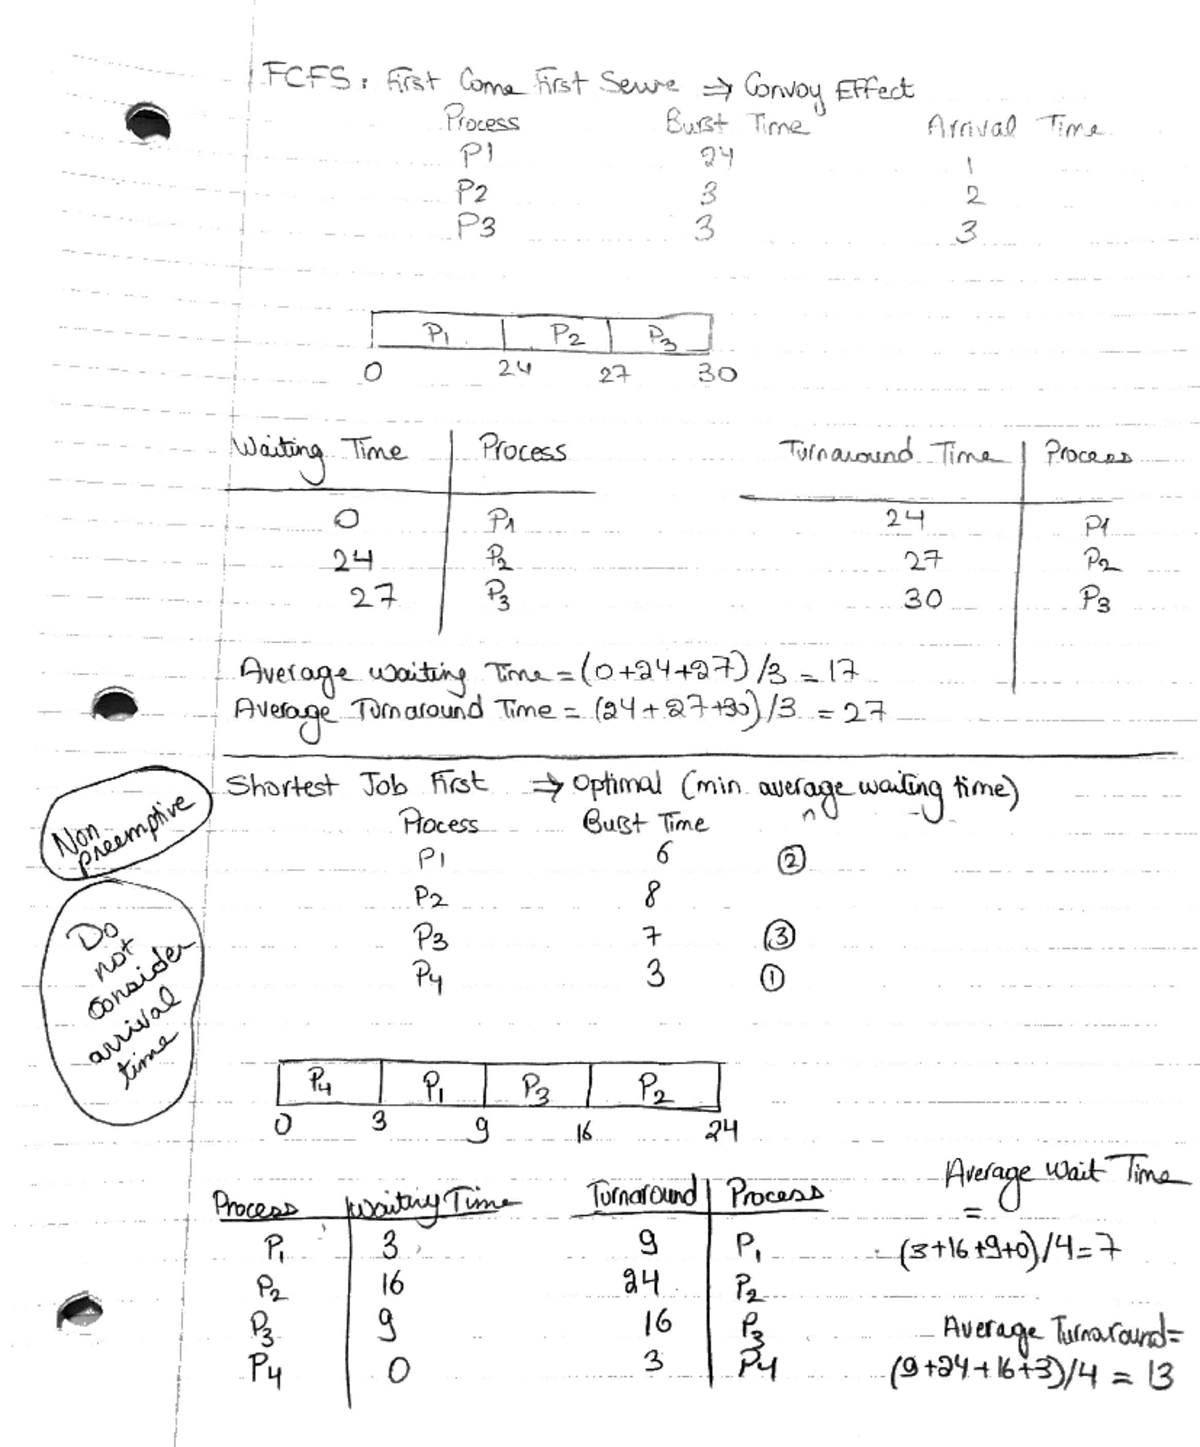 FCFS: First Come First Serve ⇒ Convoy Effect
Process Burst Time Arrival Time
P1 24 1
P2 3 2
P3 3 3
P1 P2 P3
0 24 27 30
Waiting Time Process Turnaround Time Process
0 P1 24 P1
24 P2 27 P2
27 P3 30 P3
Average waiting Time = (0+24+27)/3 = 17
Average Turnaround Time = (24+27+30)/3 = 27
Shortest Job First ⇒ Optimal (min average waiting time)
Non preemptive
Process Burst Time
P1 6 ②
P2 8
P3 7 ③
P4 3 ①
Do
not
consider
arrival
time
P4 P1 P3 P2
0 3 9 16 24
Process Waiting Time Turnaround Process Average Wait Time
=
P1 3 9 P1 (3+16+9+0)/4=7
P2 16 24 P2
P3 9 16 P3 Average Turnaround=
P4 0 3 P4 (9+24+16+3)/4 = 13